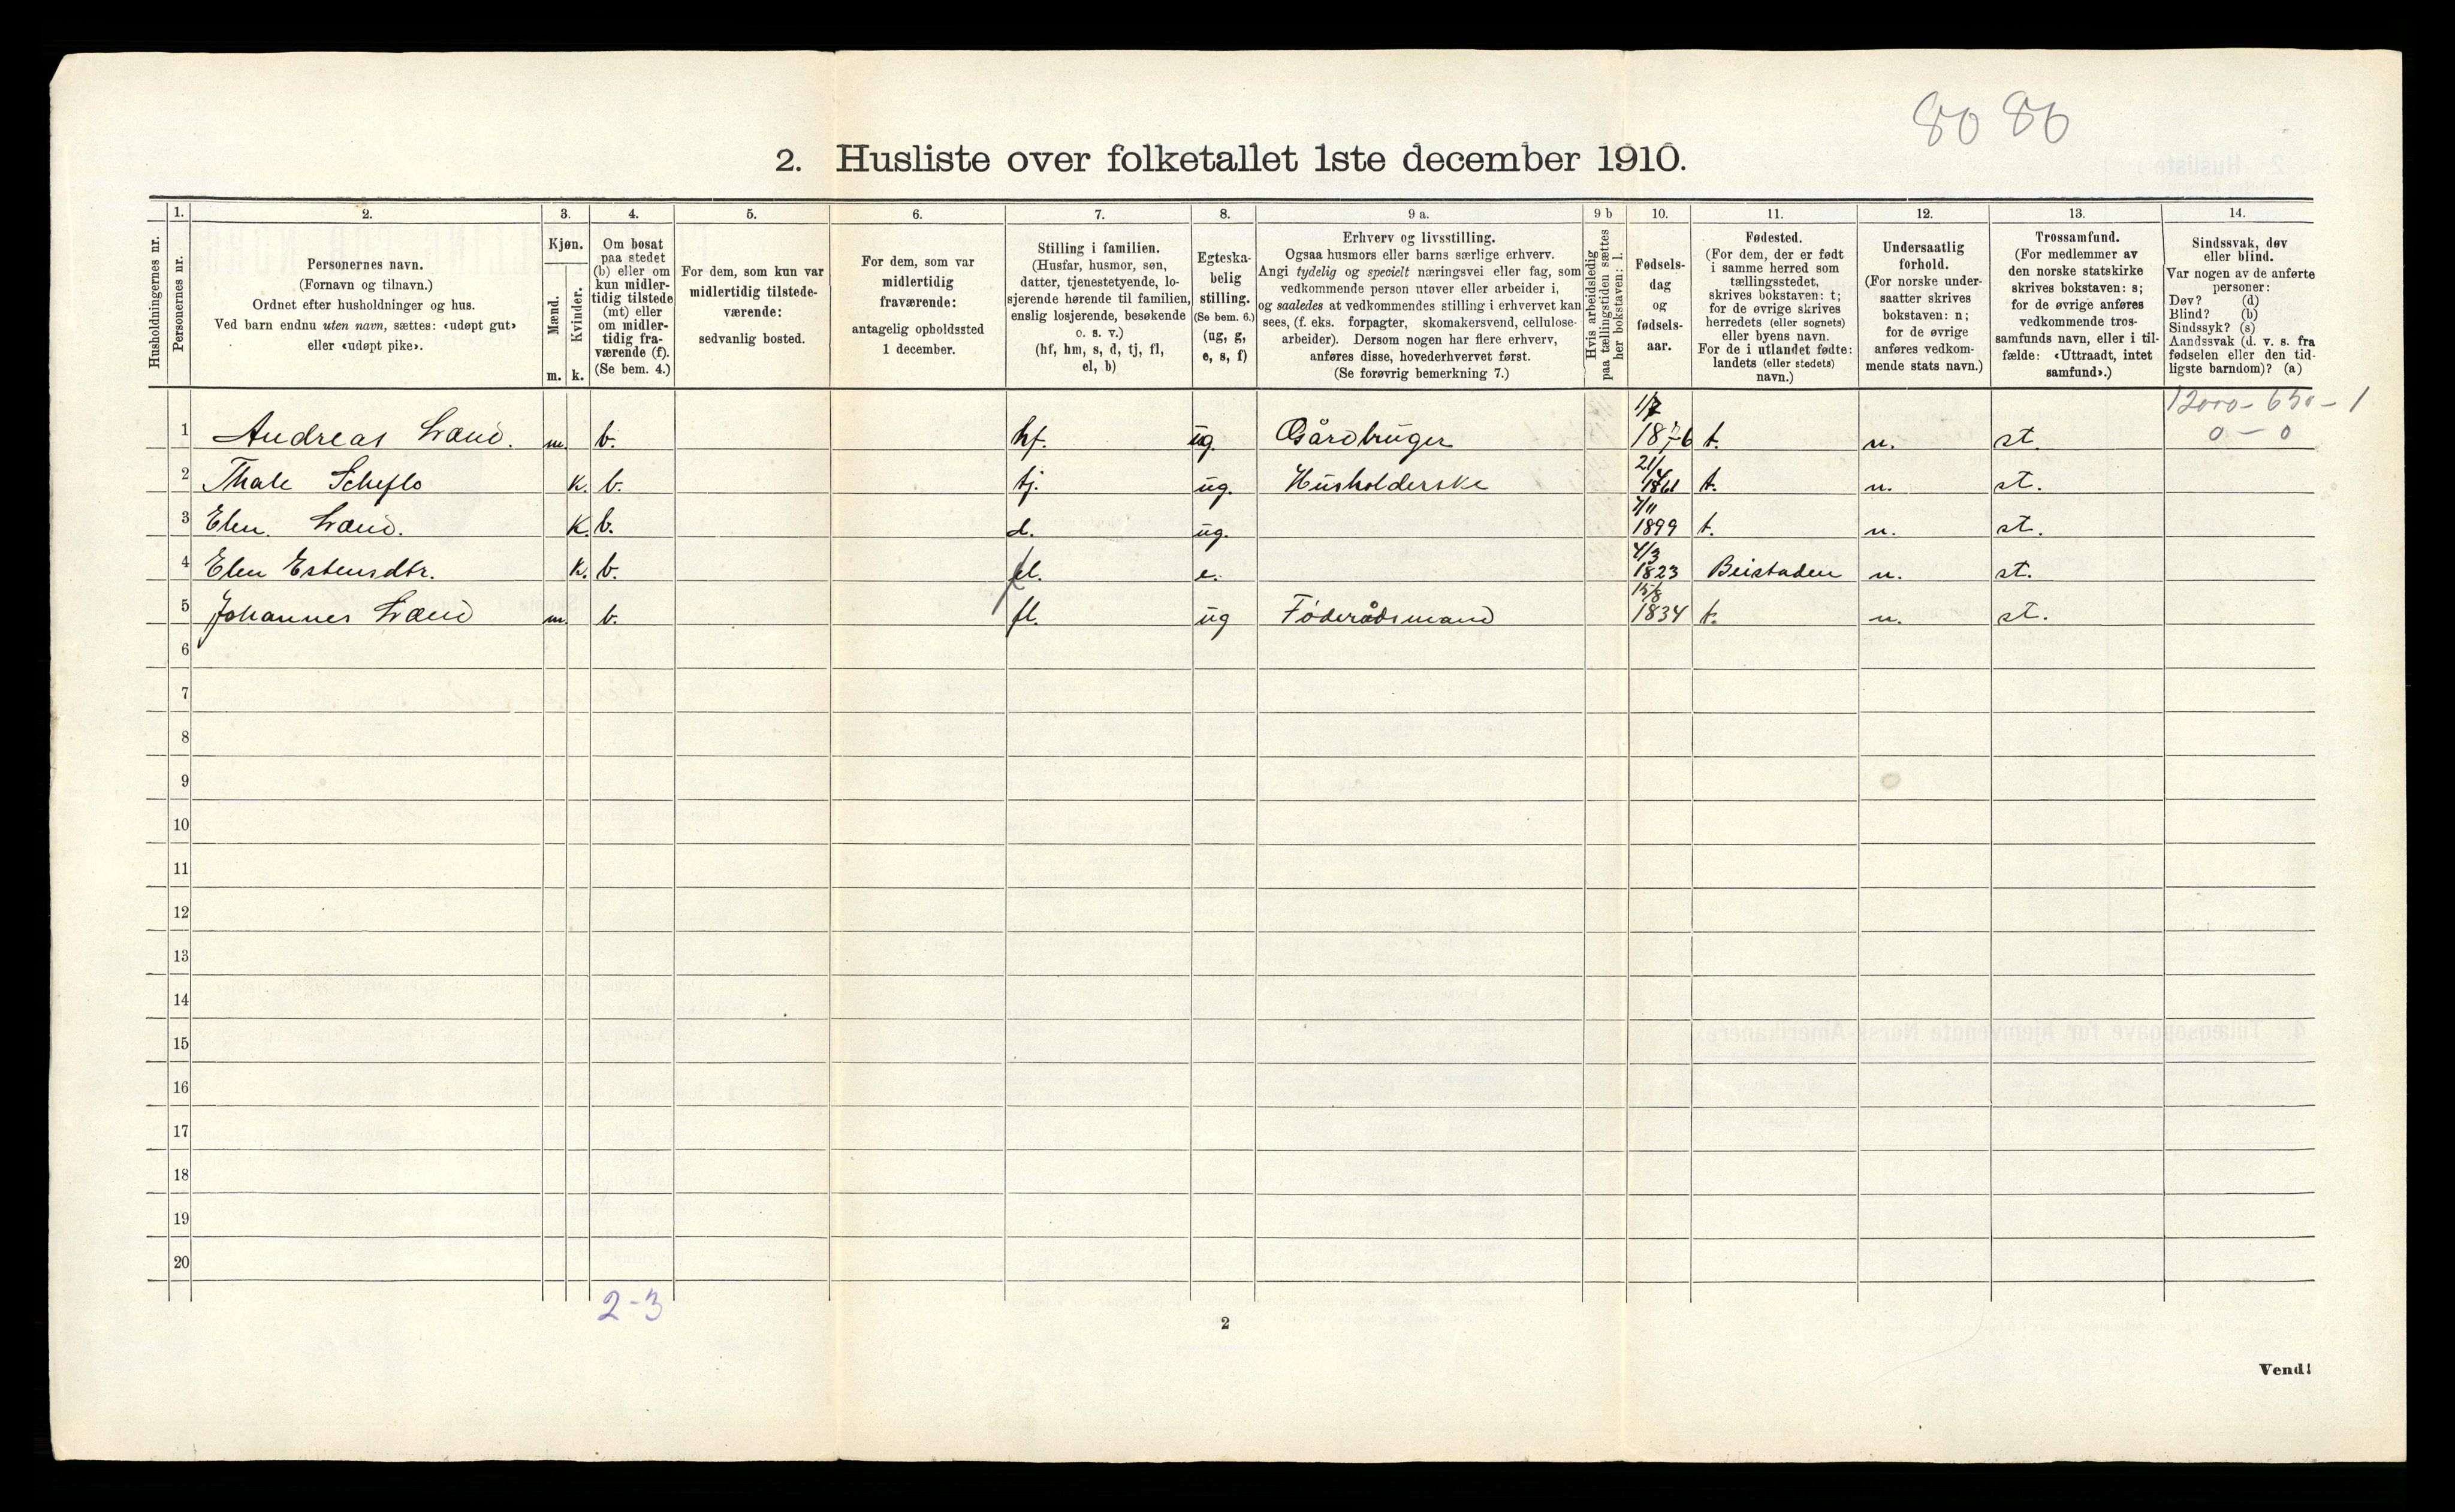 80 86
2. Husliste over folketallet 1ste december 1910.
Husholdningernes nr.
1.
Personernes nr.
2.
Personernes navn.
(Fornavn og tilnavn.)
Ordnet efter husholdninger og hus.
Ved barn endnu uten navn, sættes: «udøpt gut»
eller «udøpt pike».
3.
Kjøn.
Mænd.
m.
Kvinder.
k.
4.
Om bosat
paa stedet
(b) eller om
kun midler-
tidig tilstede
(mt) eller
om midler-
tidig fra-
værende (f).
(Se bem. 4.)
5.
For dem, som kun var
midlertidig tilstede-
værende:
sedvanlig bosted.
6.
For dem, som var
midlertidig
fraværende:
antagelig opholdssted
1 december.
7.
Stilling i familien.
(Husfar, husmor, søn,
datter, tjenestetyende, lo-
sjerende hørende til familien,
enslig losjerende, besøkende
o. s. v.)
(hf, hm, s, d, tj, fl,
el, b)
8.
Egteska-
belig
stilling.
(Se bem. 6.)
(ug, g,
e, s, f)
9 a.
Erhverv og livsstilling.
Ogsaa husmors eller barns særlige erhverv.
Angi tydelig og specielt næringsvei eller fag, som
vedkommende person utøver eller arbeider i,
og saaledes at vedkommendes stilling i erhvervet kan
sees, (f. eks. forpagter, skomakersvend, cellulose-
arbeider). Dersom nogen har flere erhverv,
anføres disse, hovederhvervet først.
(Se forøvrig bemerkning 7.)
9 b
Hvis arbeidsledig
paa tællingstiden sættes
her bokstaven: l.
10.
Fødsels-
dag
og
fødsels-
aar.
11.
Fødested.
(For dem, der er født
i samme herred som
tællingsstedet,
skrives bokstaven: t;
for de øvrige skrives
herredets (eller sognets)
eller byens navn.
For de i utlandet fødte:
landets (eller stedets)
navn.)
12.
Undersaatlig
forhold.
(For norske under-
saatter skrives
bokstaven: n;
for de øvrige
anføres vedkom-
mende stats navn.)
13.
Trossamfund.
(For medlemmer av
den norske statskirke
skrives bokstaven: s;
for de øvrige anføres
vedkommende tros-
samfunds navn, eller i til-
fælde: «Uttraadt, intet
samfund».)
14.
Sindssvak, døv
eller blind.
Var nogen av de anførte
personer:
Døv? (d)
Blind? (b)
Sindssyk? (s)
Aandssvak (d. v. s. fra
fødselen eller den tid-
ligste barndom)? (a)
12000 - 650 - 1
0 - 0
1 Andreas Land. m. b. hf. ug. Gårdbruger 1/7 1876 t. n. st.
2 Thale Scheflo k. b. tj. ug. Husholderske 21/4 1861 t. n. st.
3 Elen Land. k. b. d. ug. 7/11 1899 t. n. st.
4 Elen Estensdtr. k. b. fl. e. 4/3 1823 Beistaden n. st.
5 Johannes Land m. b. fl. ug Føderådsmand 15/8 1834 t. n. st.
6
7
8
9
10
11
12
13
14
15
16
17
18
19
20
2-3
2
Vend!